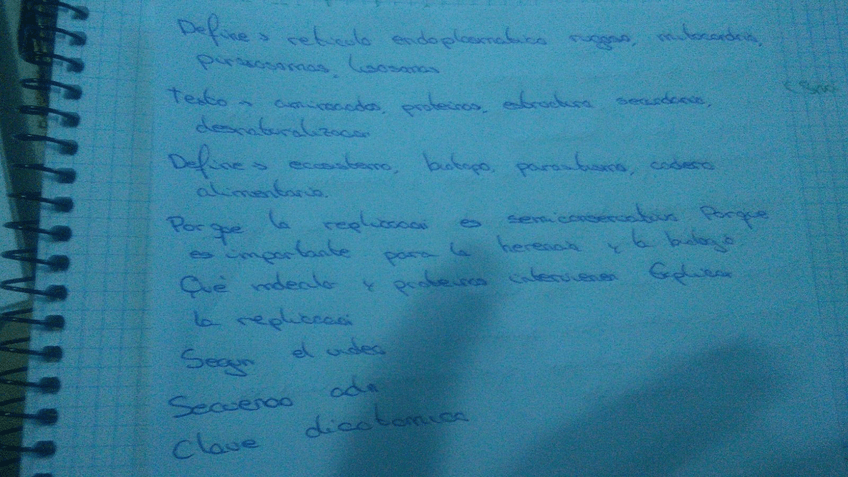 Define → reticulo endoplasmatico rugoso, mitocondria,
peroxisomas, lisosomas
Texto → aminoacidos, proteinas, estructura secundaria,
desnaturalizacion
Define → ecosistema, biotopo, parasitismo, cadena
alimentaria.
Por que la replicacion es semiconservativa Porque
es importante para la herencia y la biologia
Qué molecula y proteinas intervienen Explica
la replicacion
Segun el video
Secuencia adn
Clave dicotomica